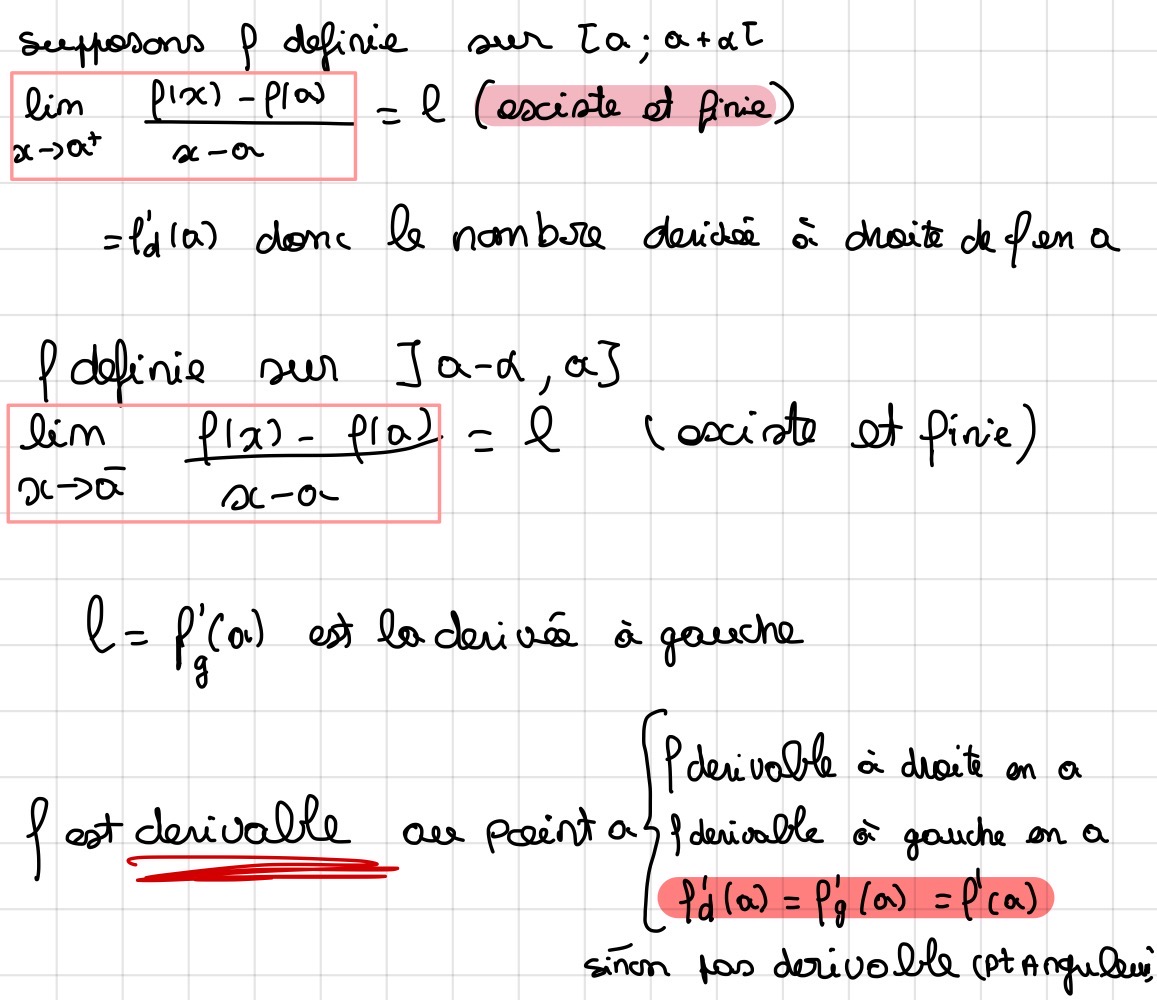 supposons f definie sur [a ; a+α[
lim x→a⁺ (f(x) - f(a))/(x - a) = l (existe et finie)
= f'd(a) donc le nombre derivée à droite de f en a
f definie sur ]a-α, a]
lim x→a⁻ (f(x) - f(a))/(x - a) = l (existe et finie)
l = f'g(a) est la derivée à gauche
f est derivable au point a {
f derivable à droite en a
f derivable à gauche en a
f'd(a) = f'g(a) = f'(a)
sinon pas derivable (pt Anguleux)